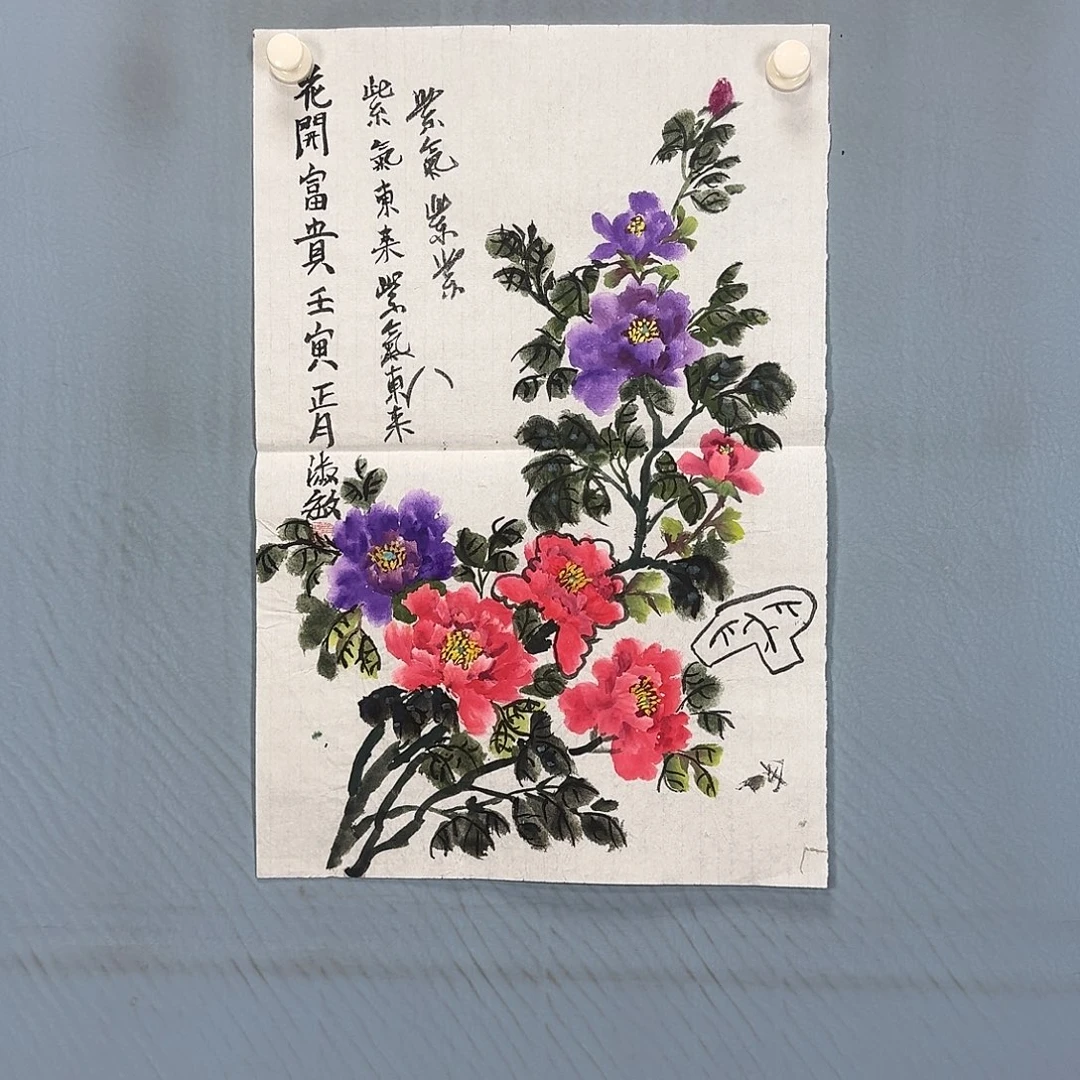 紫氣紫紫
紫氣東来紫氣東来
八
花開富貴壬寅正月淑敏